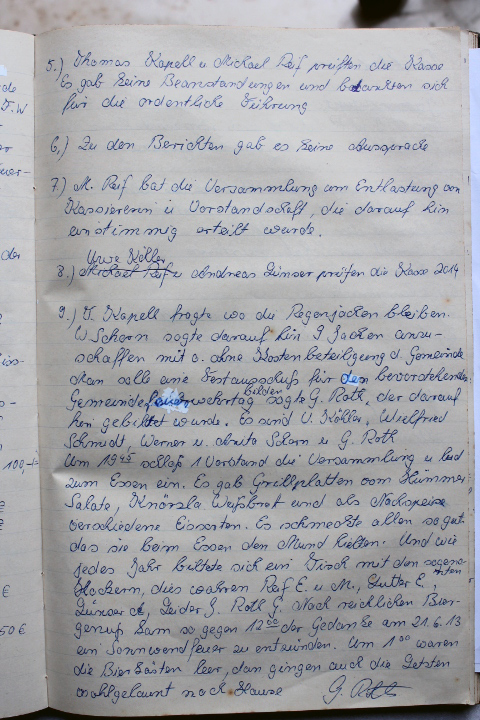 5.) Thomas Kapell u Michael Reif prüften die Kasse
Es gab keine Beanstandungen und bedankten sich
für die ordentliche Führung
6.) Zu den Berichten gab es keine Aussprache
7.) M. Reif bat die Versammlung um Entlastung von
Kassiererin u Vorstandschaft, die darauf hin
einstimmig erteilt wurde.
Uwe Köller
8.) Michael Reif u Andreas Zünser prüfen die Kasse 2014
9.) T. Kapell fragte wo die Regenjacken bleiben.
W Schorn sagte darauf hin 9 Jacken anzu-
schaffen mit o. ohne Kostenbeteiligung d. Gemeinde
Man solle eine Festausschuß für den bevorstehende
bilden
Gemeindefeuerwehrtag sagte G. Roth. der darauf
hin gebildet wurde. Es sind U. Köller, Wielfried
Schmidt, Werner u. Anita Schorn u G. Roth
Um 19 schloß 1 Vorstand die Versammlung u lud
zum Essen ein. Es gab Grillplatten vom Hümmer
Salate, Knörzla Weißbrot und als Nachspeise
verschiedene Eissorten. Es schmeckte allen so gut
das sie beim Essen den Mund hielten. Und wie
jedes Jahr bildete sich ein Tisch mit den sogena-
nnten
Hockern, dies wahren Reif E. u M., Sutter E.
Zünser A, Leider J. Roth G. Nach reichlichen Bier-
genuß kam so gegen 12 00 der Gedanke am 21.6.13
ein Sonnwendfeuer zu entzünden. Um 1 00 waren
die Bierkästen leer, dan gingen auch die Letzten
wohlgelaunt nach Hause G. Roth
de
T.W
er
der
100,-
€
50 €